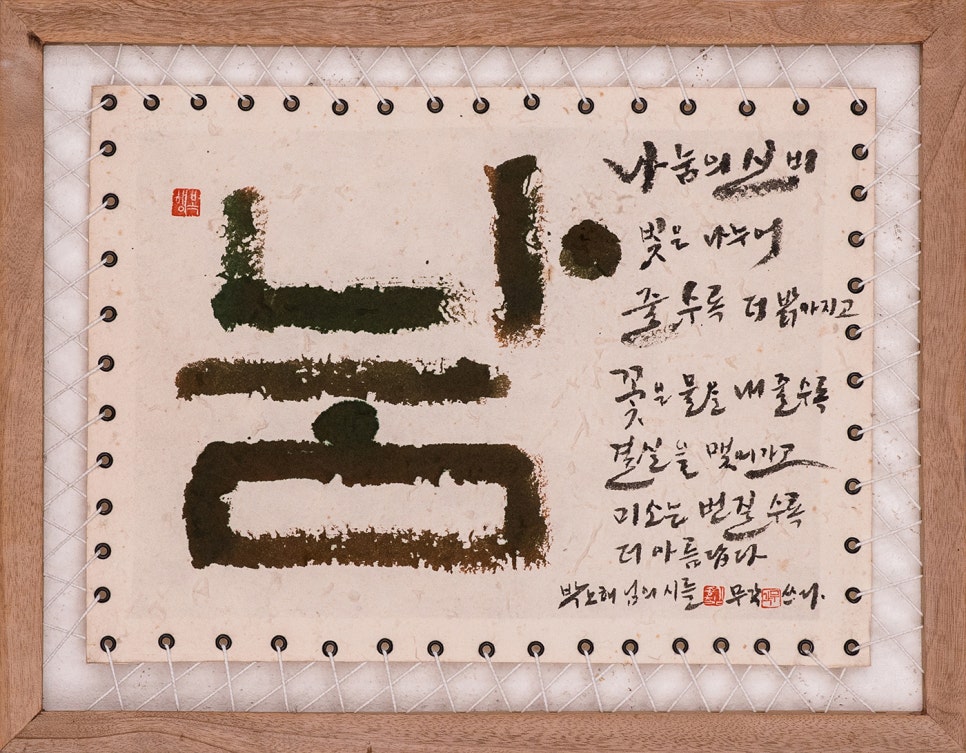 나눔
행복
나눔의 신비
빛은 나누어
줄 수록 더 밝아지고
꽃은 물을 내 줄수록
결실을 맺어가고
미소는 번질 수록
더 아름답다
박노해 님의 시를 무각 쓰다.